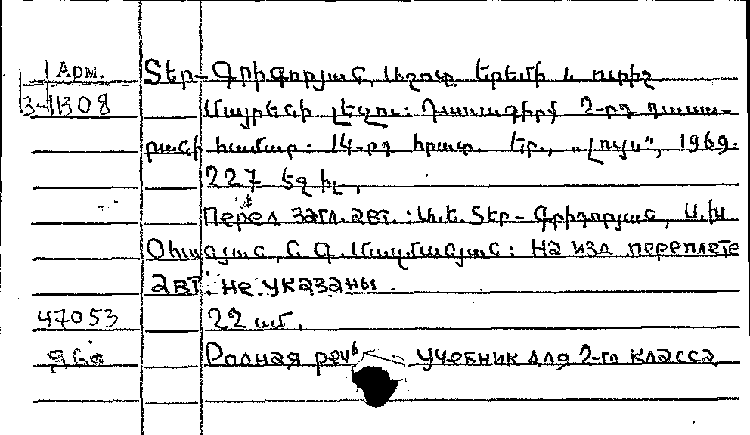 Арм. Տեր-Գրիգորյան, Աշոտ Երեմի և ուրիշ
3-11308 Մայրենի լեզու: Դասագիրք 2-րդ դասա-
րանի համար: 14-րդ հրատ. Եր., „Լույս", 1969.
227 էջ իլ.
Перед загл. авт.: Ա.Ե. Տեր-Գրիգորյան, Ա.Խ
Օհա Գ. На изд. переплете
авт. не указаны.
47053 22 սմ.
Родная речь Учебник для 2-го класса